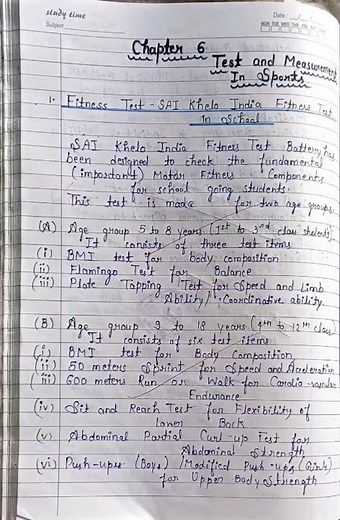 study time
Date :
Subject
MON TUE WED THU FRI SAT SUN
Chapter 6
Test and Measurement
In Sports
1. Fitness Test - SAI Khelo India Fitness Test
in School
SAI Khelo India Fitness Test Battery has
been designed to check the fundamental
(important) Motor Fitness Components
for school going students.
This test is made for two age groups
(A) Age group 5 to 8 years (1st to 3rd class students)
It consists of three test items
(i) BMI test for body composition
(ii) Flamingo Test for Balance
(iii) Plate Tapping Test for Speed and Limb
Ability/ Coordinative ability.
(B) Age group 9 to 18 years (4th to 12th class
It consists of six test items
(i) BMI test for Body Composition
(ii) 50 meters Sprint for Speed and Acceleration
(iii) 600 meters Run or Walk for Cardio-vascular
Endurance
(iv) Sit and Reach Test for Flexibility of
lower Back
(v) Abdominal Partial Curl-up Test for
Abdominal Strength
(vi) Push-ups (Boys) /Modified Push-ups (Girls)
for Upper Body Strength